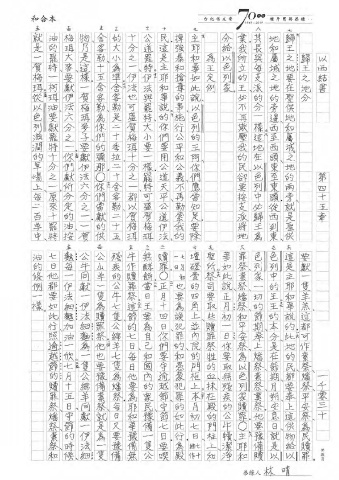 和合本
70
以西結書
第四十五章
歸王之地分
歸王之地要在聖供地和屬城之地的兩旁就是聖供
地和屬城之地的旁邊西至西頭東至東頭從西到東
其長與每支派的分一樣這地在以色列中必歸王為
業我所立的王必不再欺壓我的民卻要按支派將地
分給以色列家
為王定例
主耶和華如此說以色列的王啊你們應當知足要除
掉強暴和搶奪的事施行公平和公義不再勒索我的
民這是主耶和華說的你們要用公道天平公道伊法
公道罷特伊法與罷特大小要一樣罷特可盛賀梅珥
十分之一伊法也可盛賀梅珥十分之一都以賀梅珥
的大小為準舍客勒是二十季拉二十舍客勒二十五
舍客勒十五舍客勒為你們的彌那○你們當獻的供
物乃是這樣一賀梅珥麥子要獻伊法六分之一一賀
梅珥大麥要獻伊法六分之一你們獻所分定的油按
油的罷特一柯珥油要獻罷特十分之一原來十罷特
就是一賀梅珥從以色列滋潤的草場上每二百羊中
一千零三十
要獻一隻羊羔這都可作素祭燔祭平安祭為民贖罪
這是主耶和華說的此地的民都要奉上這供物給以
色列中的王王的本分是在節期月朔安息日就是以
色列家一切的節期奉上燔祭素祭奠祭他要預備贖
罪祭素祭燔祭和平安祭為以色列家贖罪○主耶和
華如此說正月初一日你要取無殘疾的公牛犢潔淨
聖所祭司要取些贖罪祭牲的血抹在殿的門柱上和
壇磴臺的四角上並內院的門框上本月初七日也要
為誤犯罪的和愚蒙犯罪的如此行為殿
贖罪正月十四日你們要守逾越節守節七日要喫
無酵餅當日王要為自己和國內的眾民預備一隻公
牛作贖罪祭這節的七日
殘疾的公牛七隻公綿羊七隻為燔祭每日又要預備
公山羊一隻為贖罪祭他也要預備素祭就是為一隻
公牛同獻一伊法細麵為一隻公綿羊同獻一伊法細
麵每一伊法細麵加油一欣七月十五日守節的時候
七日他都要如此行照逾越節的贖罪祭燔祭素祭和
油的條例一樣
抄經人 林晴